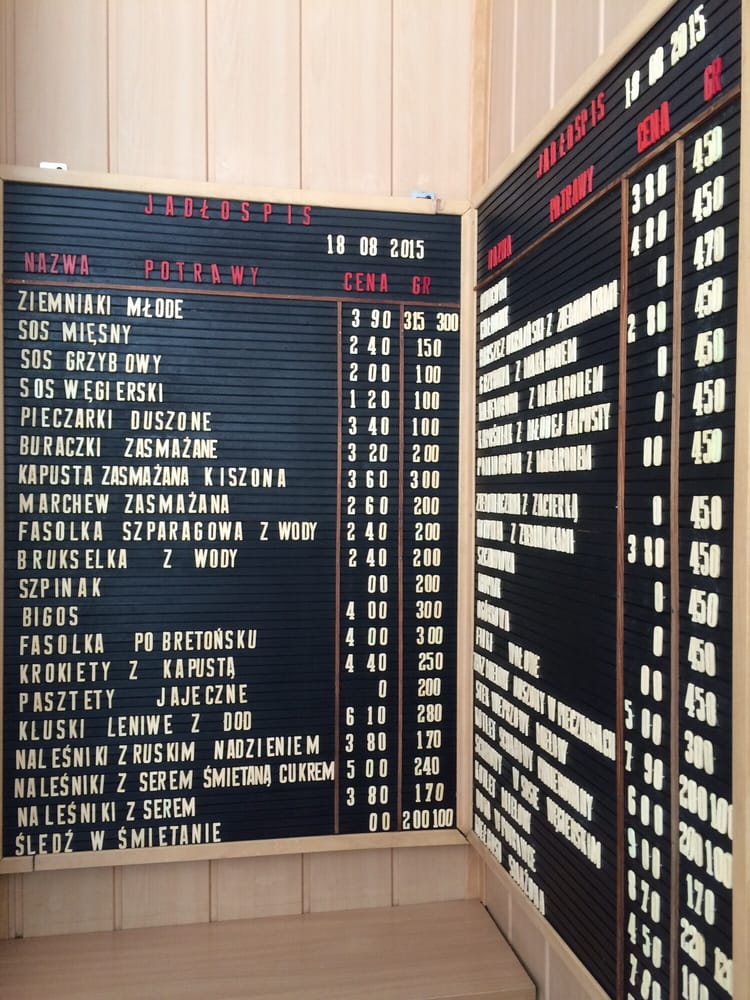 JADŁOSPIS
18 08 2015
NAZWA POTRAWY CENA GR
ZIEMNIAKI MŁODE 3 90 315 300
SOS MIĘSNY 2 40 150
SOS GRZYBOWY 2 00 100
SOS WĘGIERSKI 1 20 100
PIECZARKI DUSZONE 3 40 100
BURACZKI ZASMAŻANE 3 20 200
KAPUSTA ZASMAŻANA KISZONA 3 60 300
MARCHEW ZASMAŻANA 2 60 200
FASOLKA SZPARAGOWA Z WODY 2 40 200
BRUKSELKA Z WODY 2 40 200
SZPINAK 00 200
BIGOS 4 00 300
FASOLKA PO BRETOŃSKU 4 00 300
KROKIETY Z KAPUSTĄ 4 40 250
PASZTETY JAJECZNE 0 200
KLUSKI LENIWE Z DOD 6 10 280
NALEŚNIKI Z RUSKIM NADZIENIEM 3 80 170
NALEŚNIKI Z SEREM ŚMIETANĄ CUKREM 5 00 240
NALEŚNIKI Z SEREM 3 80 170
ŚLEDŹ W ŚMIETANIE 00 200 100
JADŁOSPIS 18 08 2015
NAZWA POTRAWY CENA GR
3 80 450
4 80 450
BARSZCZ UKRAIŃSKI Z ZIEMNIAKAMI 0 470
GRZYBOWA Z MAKARONEM 2 80 450
Z MAKARONEM 0 450
KAPUŚNIAK Z MŁODEJ KAPUSTY 0 450
POMIDOROWA Z MAKARONEM 00 450
ZIEMNIACZANA Z ZACIERKĄ 0 450
Z ZIEMNIAKAMI 3 80 450
0 450
0 450
OGÓRKOWA 00 450
5 00 300
7 90 200 100
6 00 200 100
SCHABOWY 9 00 170
8 70 220
4 50
7 80